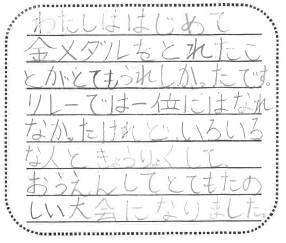 わたしははじめて
金メダルをとれたこ
とがとてもうれしかったです。
リレーでは一位にはなれ
なかったけれど、いろいろ
な人ときょうりょくして、
おうえんしてとてもたの
しい大会になりました。